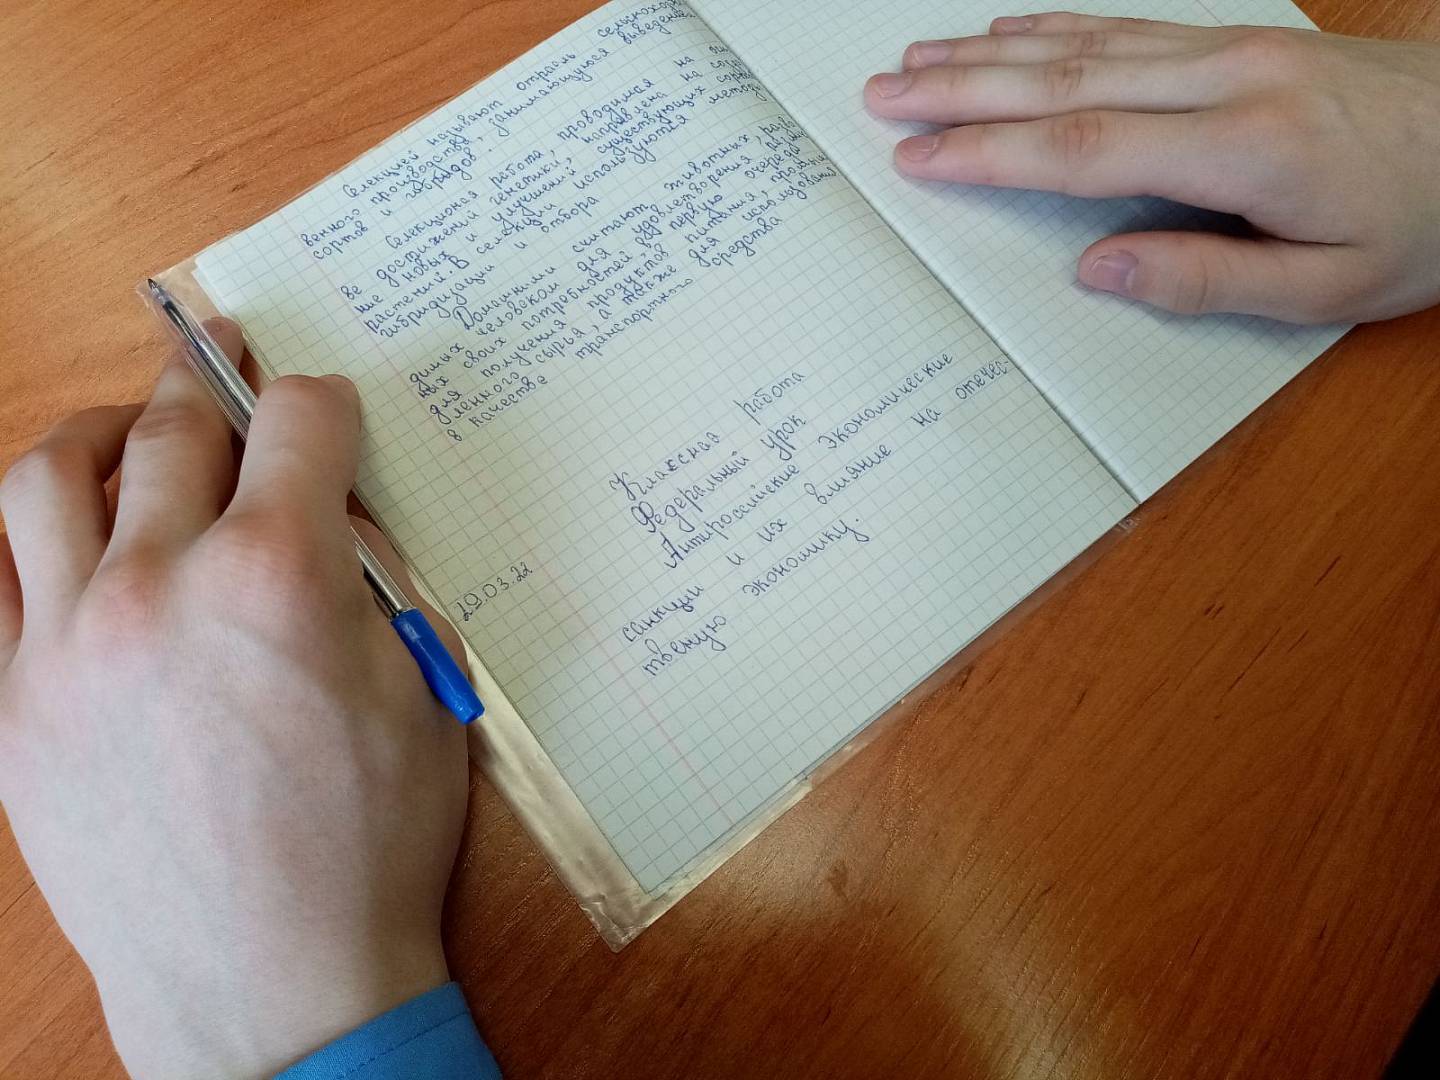 Селекцией называют отрасль сельскохозяйст
венного производства, занимающуюся выведением
сортов и гибридов.
Селекционая работа, проводимая на
ве достижений генетики, направлена на
ние новых и улучшений существующих
растений. В селекции используются
гибридизации и отбора
Домашними считают животных,
димых человеком для удовлетворения
ных своих потребностей, в первую очередь
для получения продуктов питания,
ленного сырья, а также для использования
в качестве транспортного средства
29.03.22 Классная работа
Федеральный урок
Антиросейские экономические
санкции и их влияние на отечес-
твеную экономику.